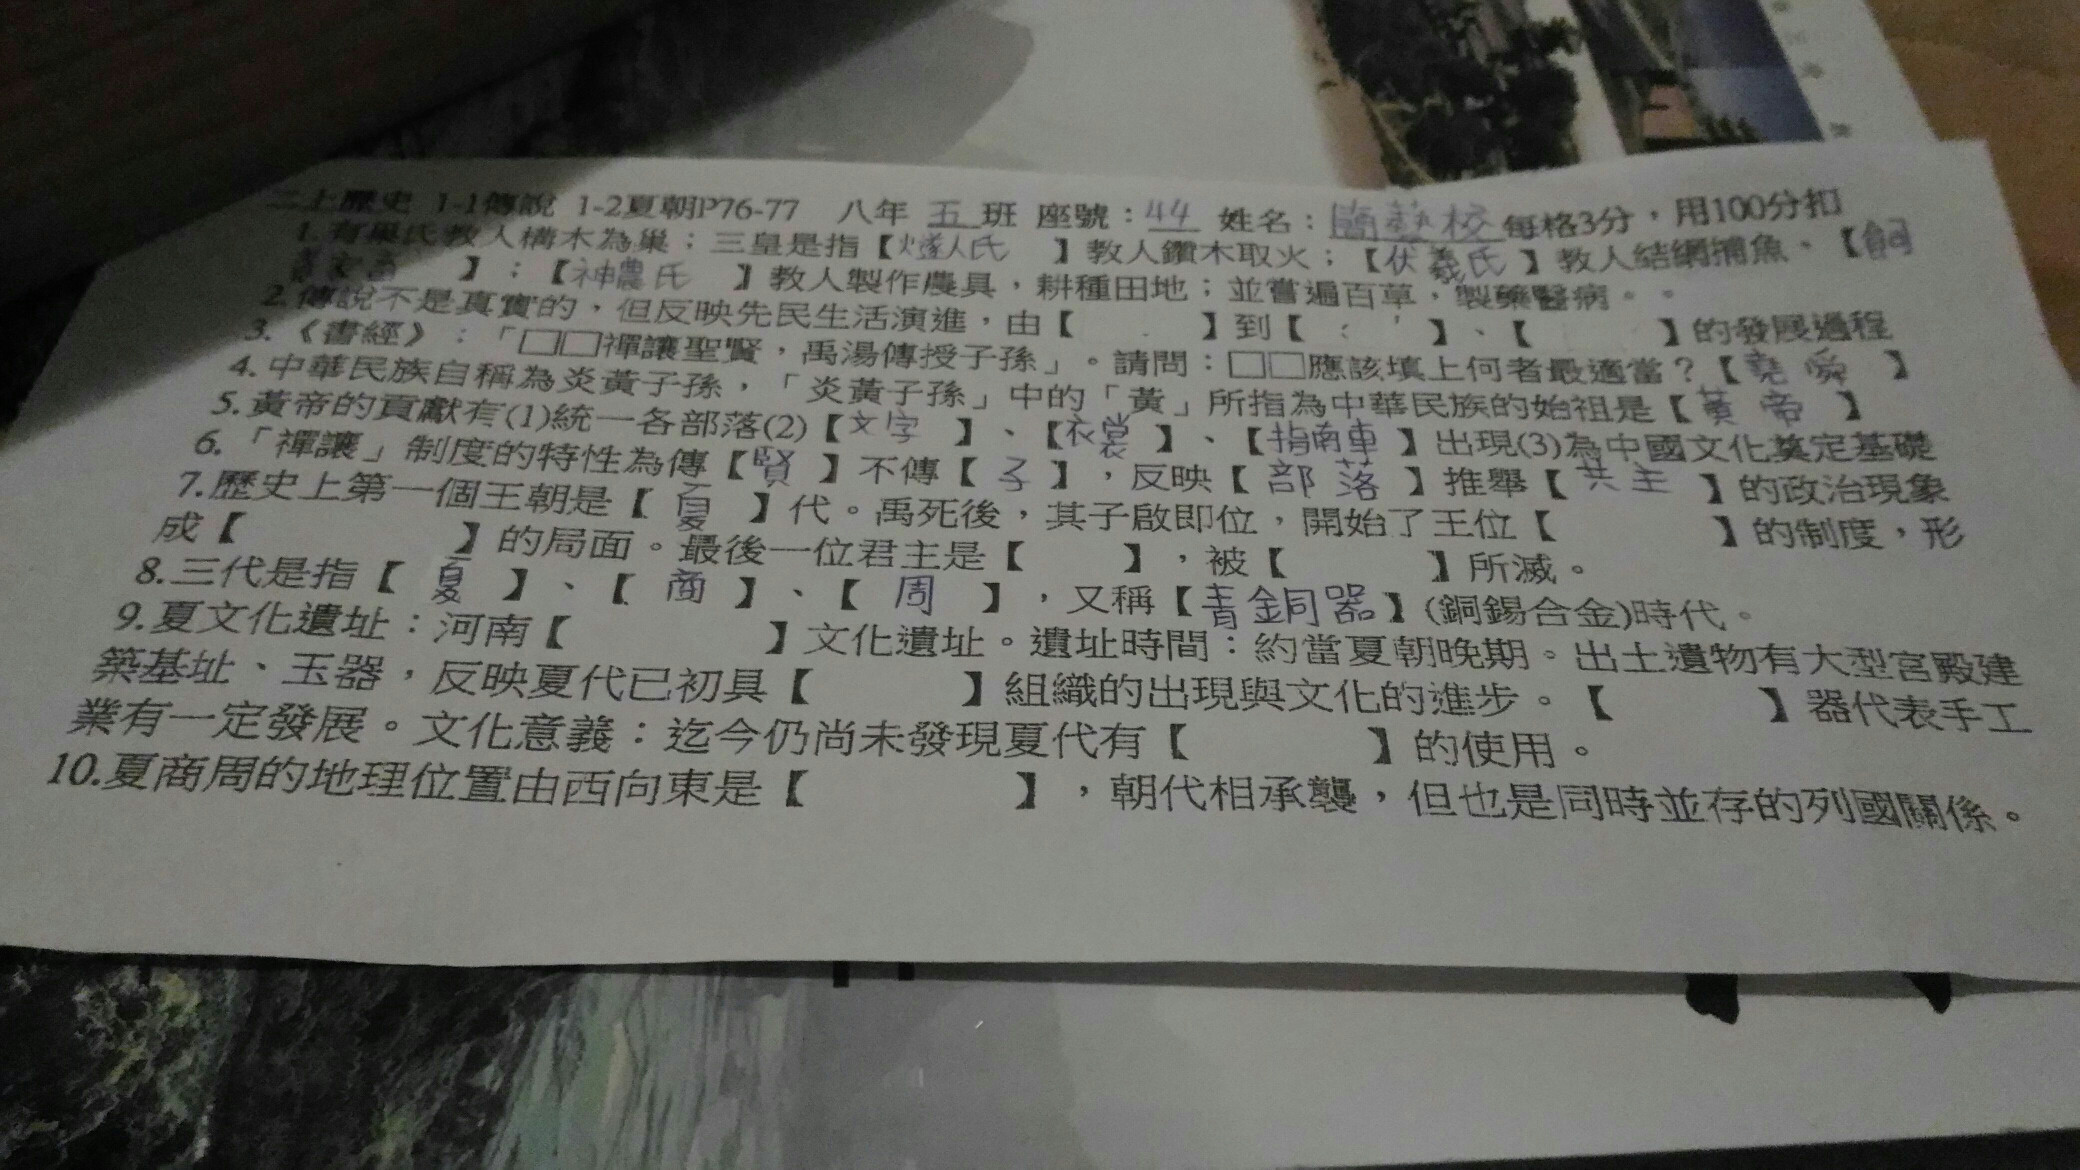 二上歷史 1-1傳說 1-2夏朝P76-77 八年 五 班 座號：44 姓名：簡 每格3分，用100分扣
1.有巢氏教人構木為巢；三皇是指【燧人氏 】教人鑽木取火；【伏羲氏】教人結網捕魚、【飼
養家畜 】；【神農氏 】教人製作農具，耕種田地；並嘗遍百草，製藥醫病。。
2.傳說不是真實的，但反映先民生活演進，由【 】到【 】、【 】的發展過程
3.《書經》：「□□禪讓聖賢，禹湯傳授子孫」。請問：□□應該填上何者最適當？【堯 舜 】
4.中華民族自稱為炎黃子孫，「炎黃子孫」中的「黃」所指為中華民族的始祖是【黃 帝 】
5.黃帝的貢獻有(1)統一各部落(2)【文字 】、【衣裳 】、【指南車 】出現(3)為中國文化奠定基礎
6.「禪讓」制度的特性為傳【賢 】不傳【 子 】，反映【 部 落 】推舉【 共 主 】的政治現象
7.歷史上第一個王朝是【 夏 】代。禹死後，其子啟即位，開始了王位【 】的制度，形
成【 】的局面。最後一位君主是【 】，被【 】所滅。
8.三代是指【 夏 】、【 商 】、【 周 】，又稱【青銅器】(銅錫合金)時代。
9.夏文化遺址：河南【 】文化遺址。遺址時間：約當夏朝晚期。出土遺物有大型宮殿建
築基址、玉器，反映夏代已初具【 】組織的出現與文化的進步。【 】器代表手工
業有一定發展。文化意義：迄今仍尚未發現夏代有【 】的使用。
10.夏商周的地理位置由西向東是【 】，朝代相承襲，但也是同時並存的列國關係。